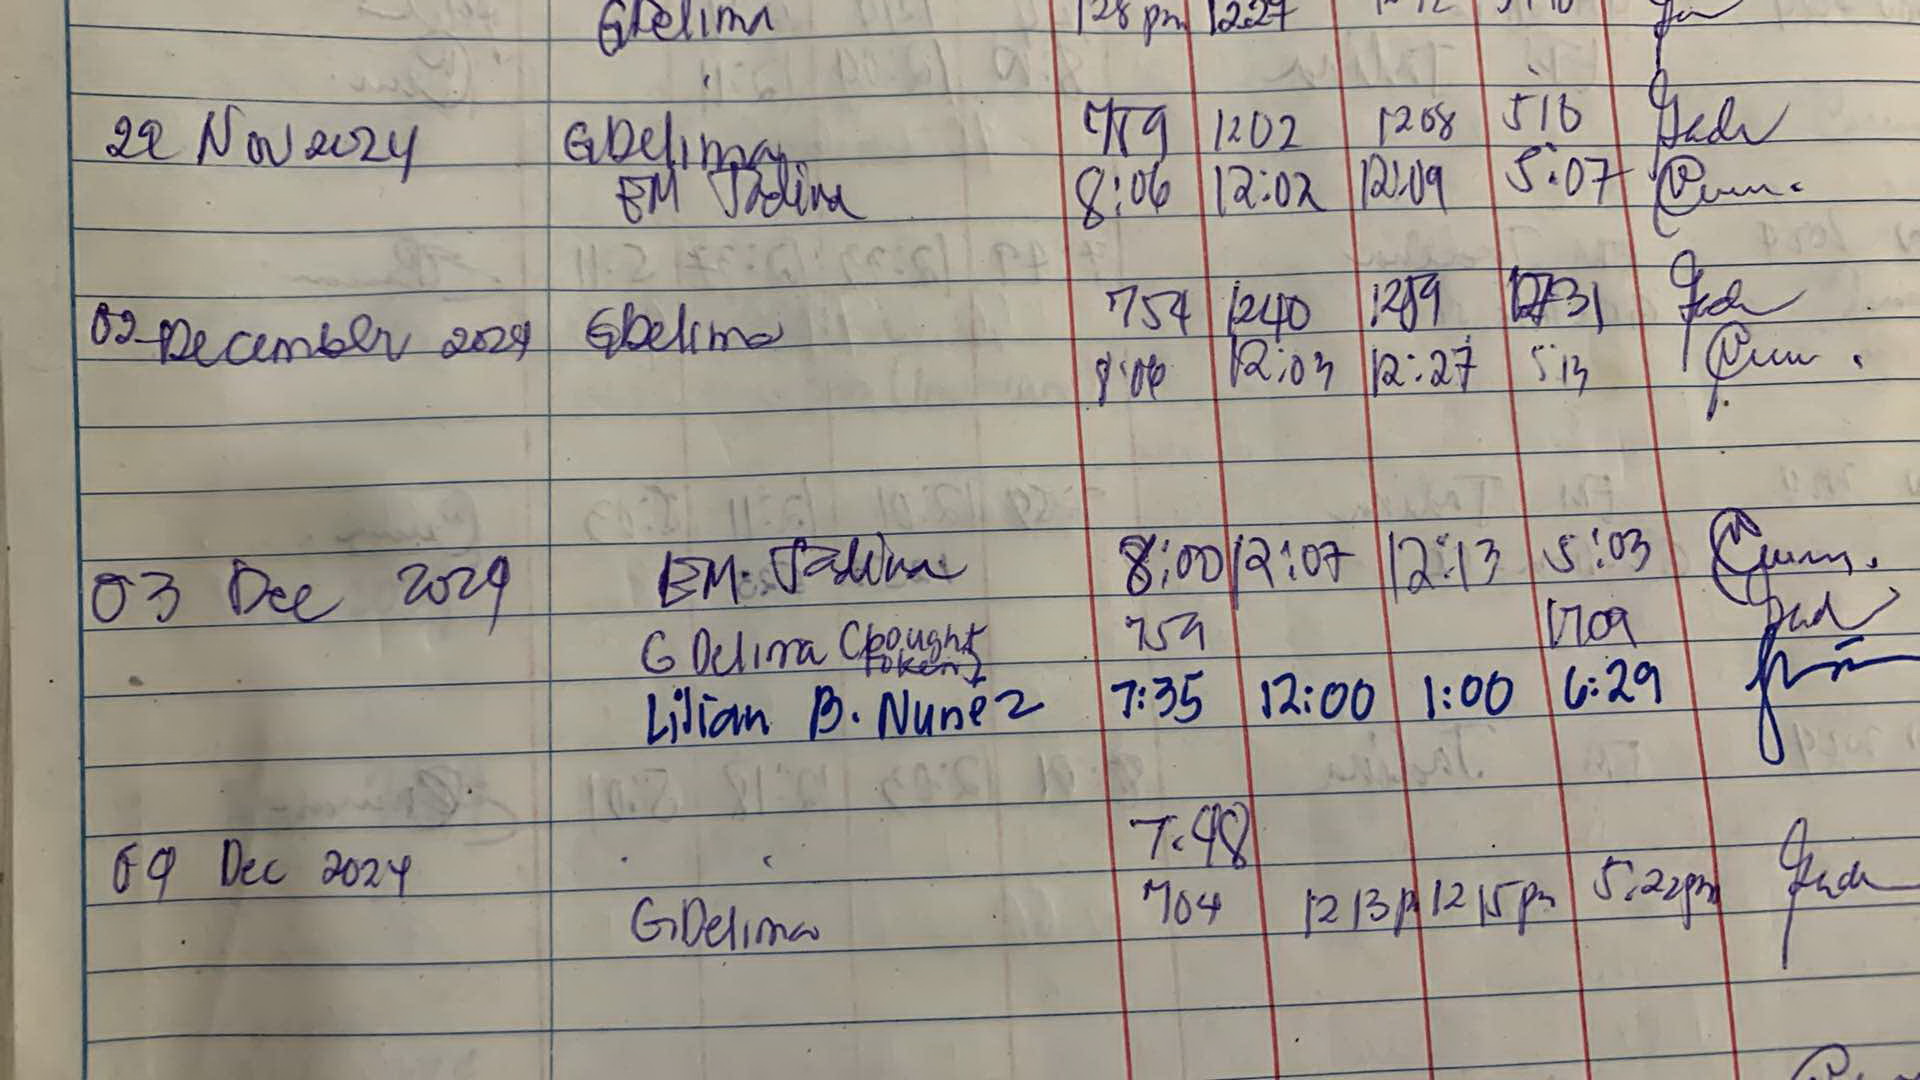 GDelima 128 pm 1227
29 Nov 2024 GDelima 759 1202 1208 510
EM Tadina 8:06 12:02 12:09 5:07
02 December 2024 GDelima 754 1240 1259 1731
8:06 12:03 12:27 5:13
03 Dec 2024 EM. Tadina 8:00 12:07 12:13 5:03
G Delima (bought token) 759 1709
Lilian B. Nunez 7:35 12:00 1:00 6:29
7:48
04 Dec 2024
GDelima 704 1213p 1215pm 5:22pm